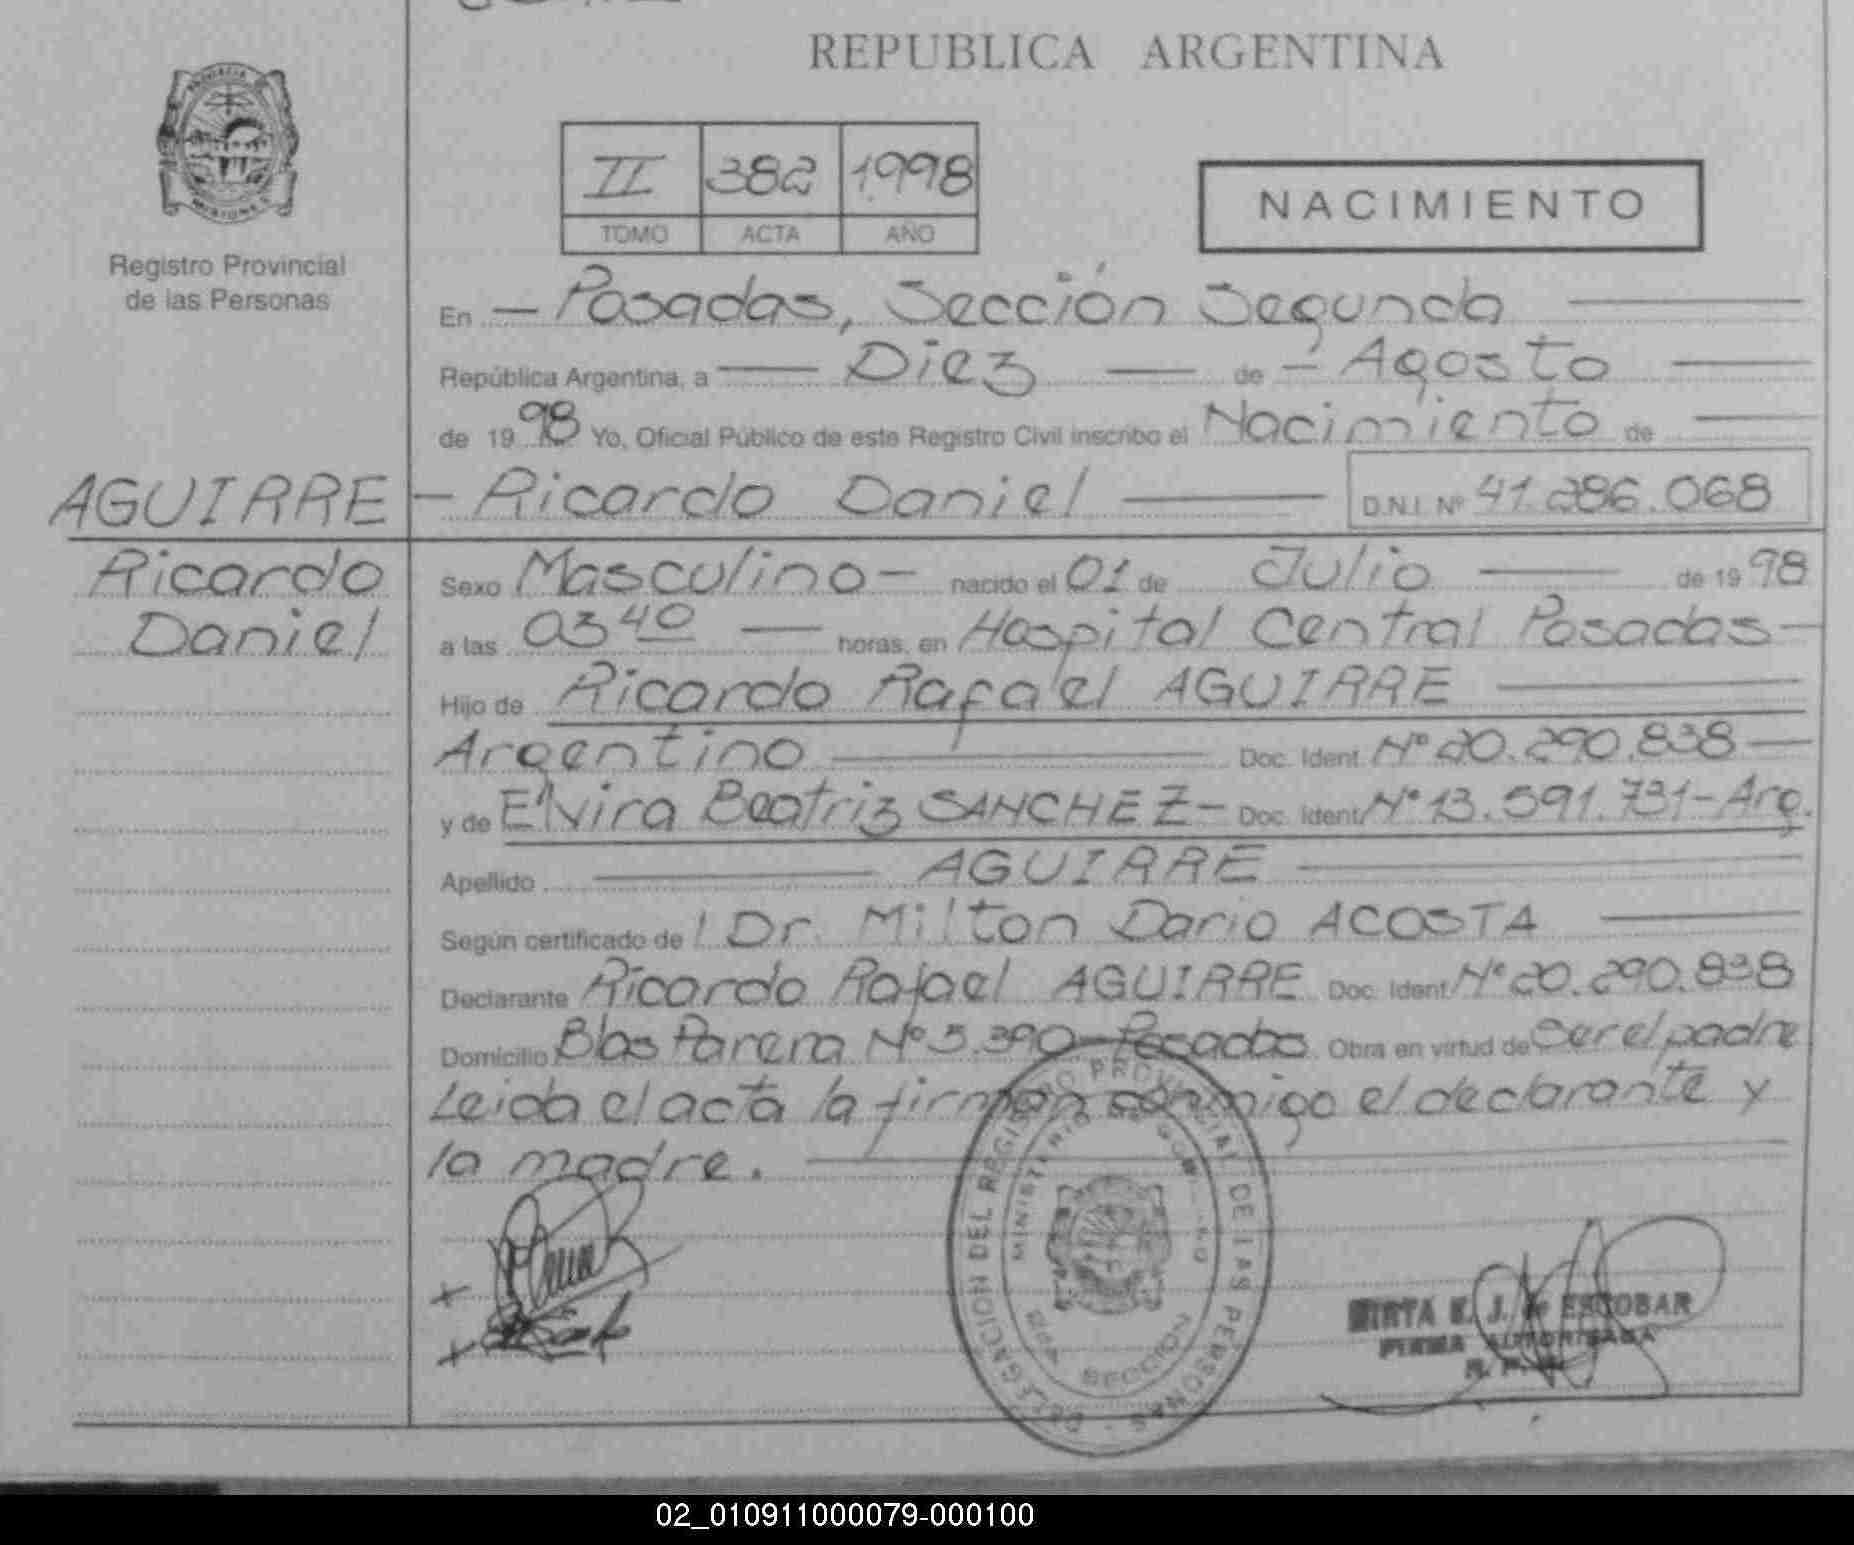 REPUBLICA ARGENTINA
II 382 1998
TOMO ACTA AÑO
NACIMIENTO
MISIONES
Registro Provincial
de las Personas
En — Posadas, Sección Segunda
República Argentina, a — Diez — de — Agosto
de 1998 Yo, Oficial Público de este Registro Civil inscribo el Nacimiento de
AGUIRRE - Ricardo Daniel — D.N.I. Nº 41.286.068
Ricardo
Daniel
Sexo Masculino - nacido el 01 de Julio — de 1998
a las 03 40 — horas, en Hospital Central Posadas -
Hijo de Ricardo Rafael AGUIRRE
Argentino — Doc. Ident. Nº 20.290.838 —
y de Elvira Beatriz SANCHEZ - Doc. Ident. Nº 13.591.731 - Arg.
Apellido — AGUIRRE —
Según certificado de Dr. Milton Dario ACOSTA
Declarante Ricardo Rafael AGUIRRE Doc. Ident. Nº 20.290.838
Domicilio Blas Parera Nº 5.390 - Posadas. Obra en virtud de Ser el padre
Leida el acta la firman conmigo el declarante y
la madre.
DELEGACION DEL REGISTRO PROVINCIAL DE LAS PERSONAS
MINISTERIO DE
SECCION
MIRTA E. J. de ESCOBAR
FIRMA AUTORIZADA
02_010911000079-000100